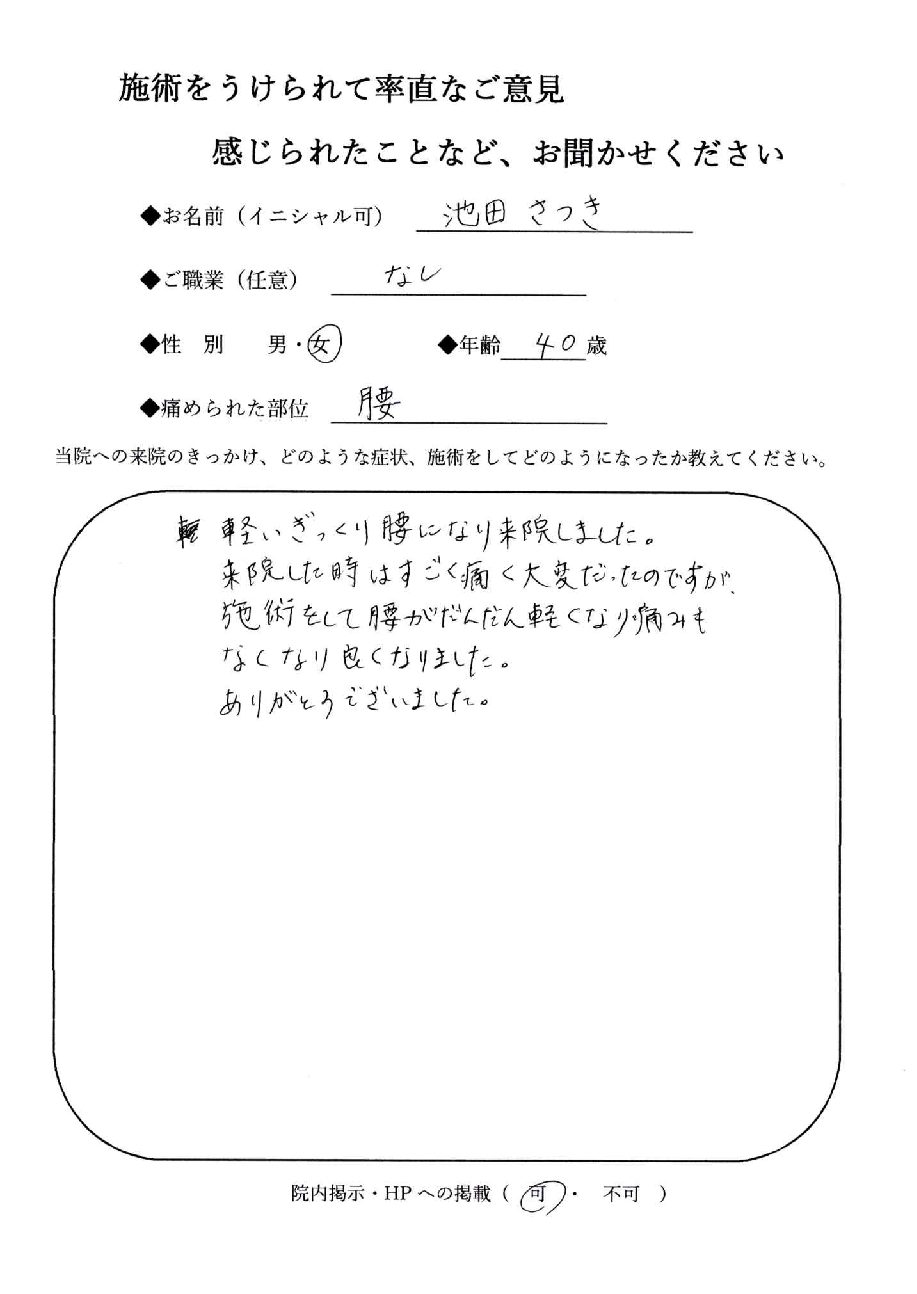 施術をうけられて率直なご意見
感じられたことなど、お聞かせください
◆お名前（イニシャル可） 池田 さつき
◆ご職業（任意） なし
◆性 別 男・女 ◆年齢 40 歳
◆痛められた部位 腰
当院への来院のきっかけ、どのような症状、施術をしてどのようになったか教えてください。
軽いぎっくり腰になり来院しました。
来院した時はすごく痛く大変だったのですが、
施術をして腰がだんだん軽くなり痛みも
なくなり良くなりました。
ありがとうございました。
院内掲示・HPへの掲載（ 可 ・ 不可 ）